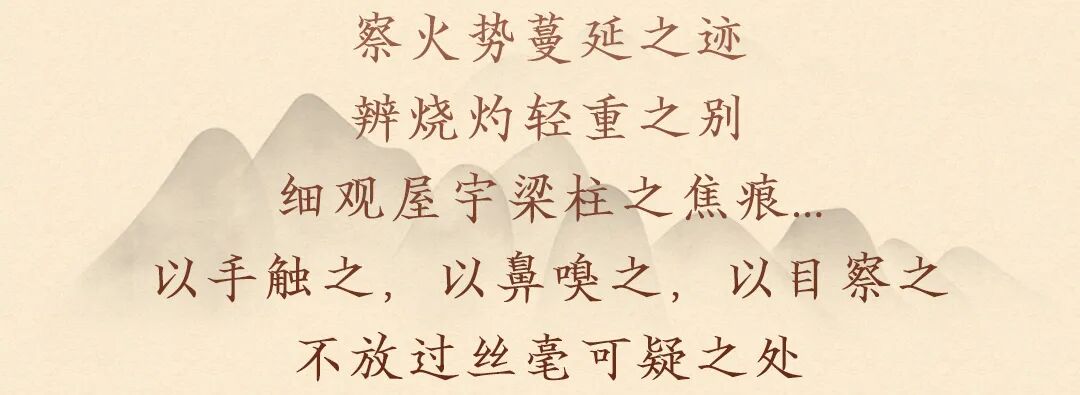 察火势蔓延之迹
辨烧灼轻重之别
细观屋宇梁柱之焦痕...
以手触之，以鼻嗅之，以目察之
不放过丝毫可疑之处